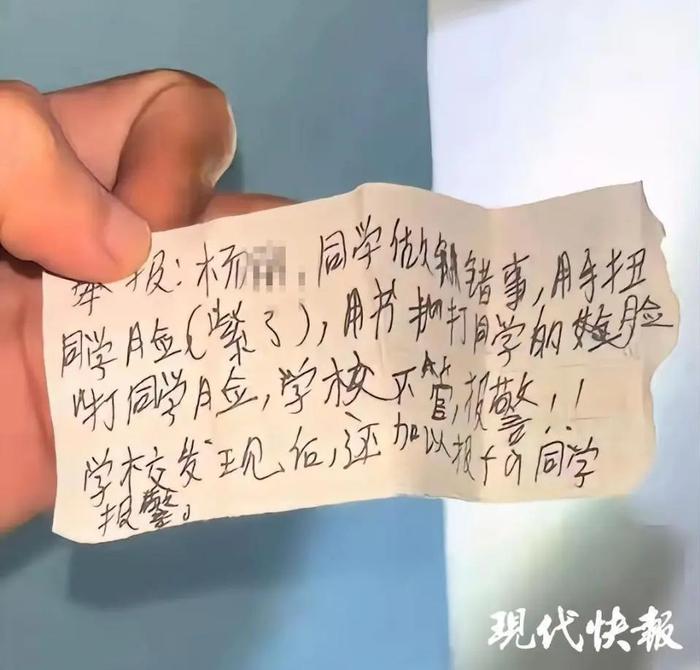 举报：杨 同学做错事，用手扭
同学脸（紫了），用书抽打同学的脸
打同学脸，学校不管，报警！！
学校发现后，还加以报 同学
报警。
現代快報